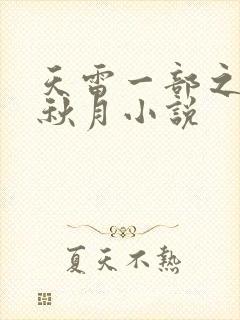 天雷一部之
秋月小說
夏天不熱